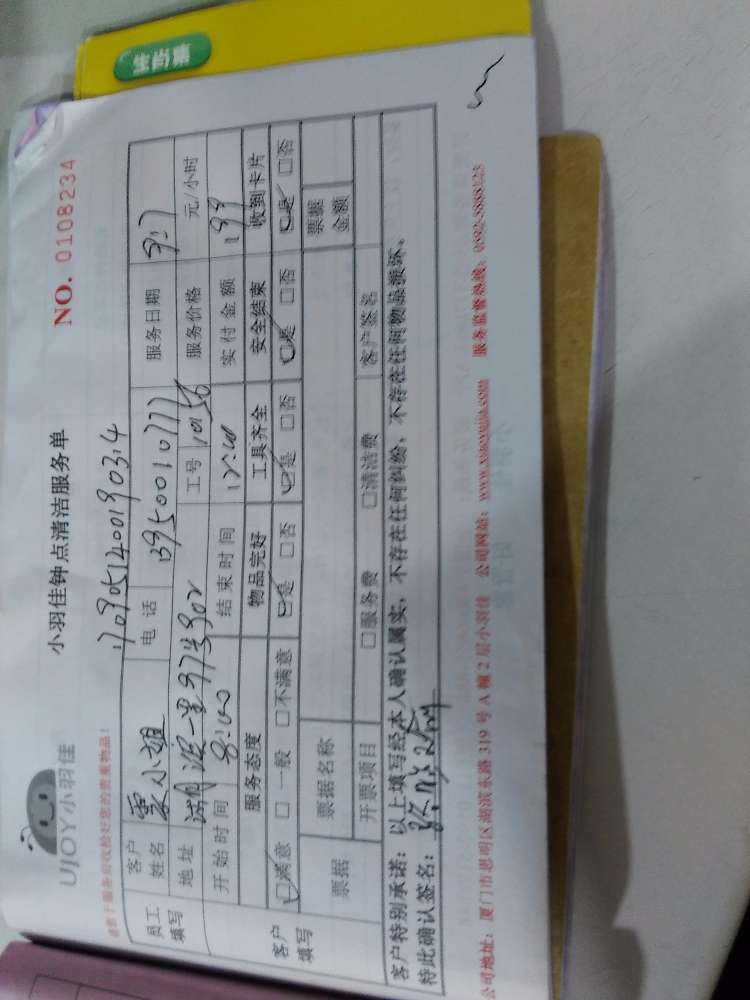 转型期
UJOY小羽佳
小羽佳钟点清洁服务单
NO. 0108234
请客于服务前收拾好您的贵重物品!
17090514001903 4
员工填写
客户姓名 小姐 电话 13950010777 服务日期 9.7
地址 湖滨一里97号902 工号 10156 服务价格 元/小时
开始时间 8:00 结束时间 12:00 实付金额 199
客户填写
服务态度 物品完好 工具齐全 安全结束 收到卡片
☑满意 □一般 □不满意 ☑是 □否 ☑是 □否 ☑是 □否 ☑是 □否
票据 票据名称 票据金额
开票项目 □服务费 □清洁费 客户签名
客户特别承诺:以上填写经本人确认属实,不存在任何纠纷,不存在任何物品损坏。
特此确认签名:
公司地址:厦门市思明区湖滨东路319号A幢2层小羽佳 公司网站:www.xiaoyujia.com 服务监督热线:0592-5888123